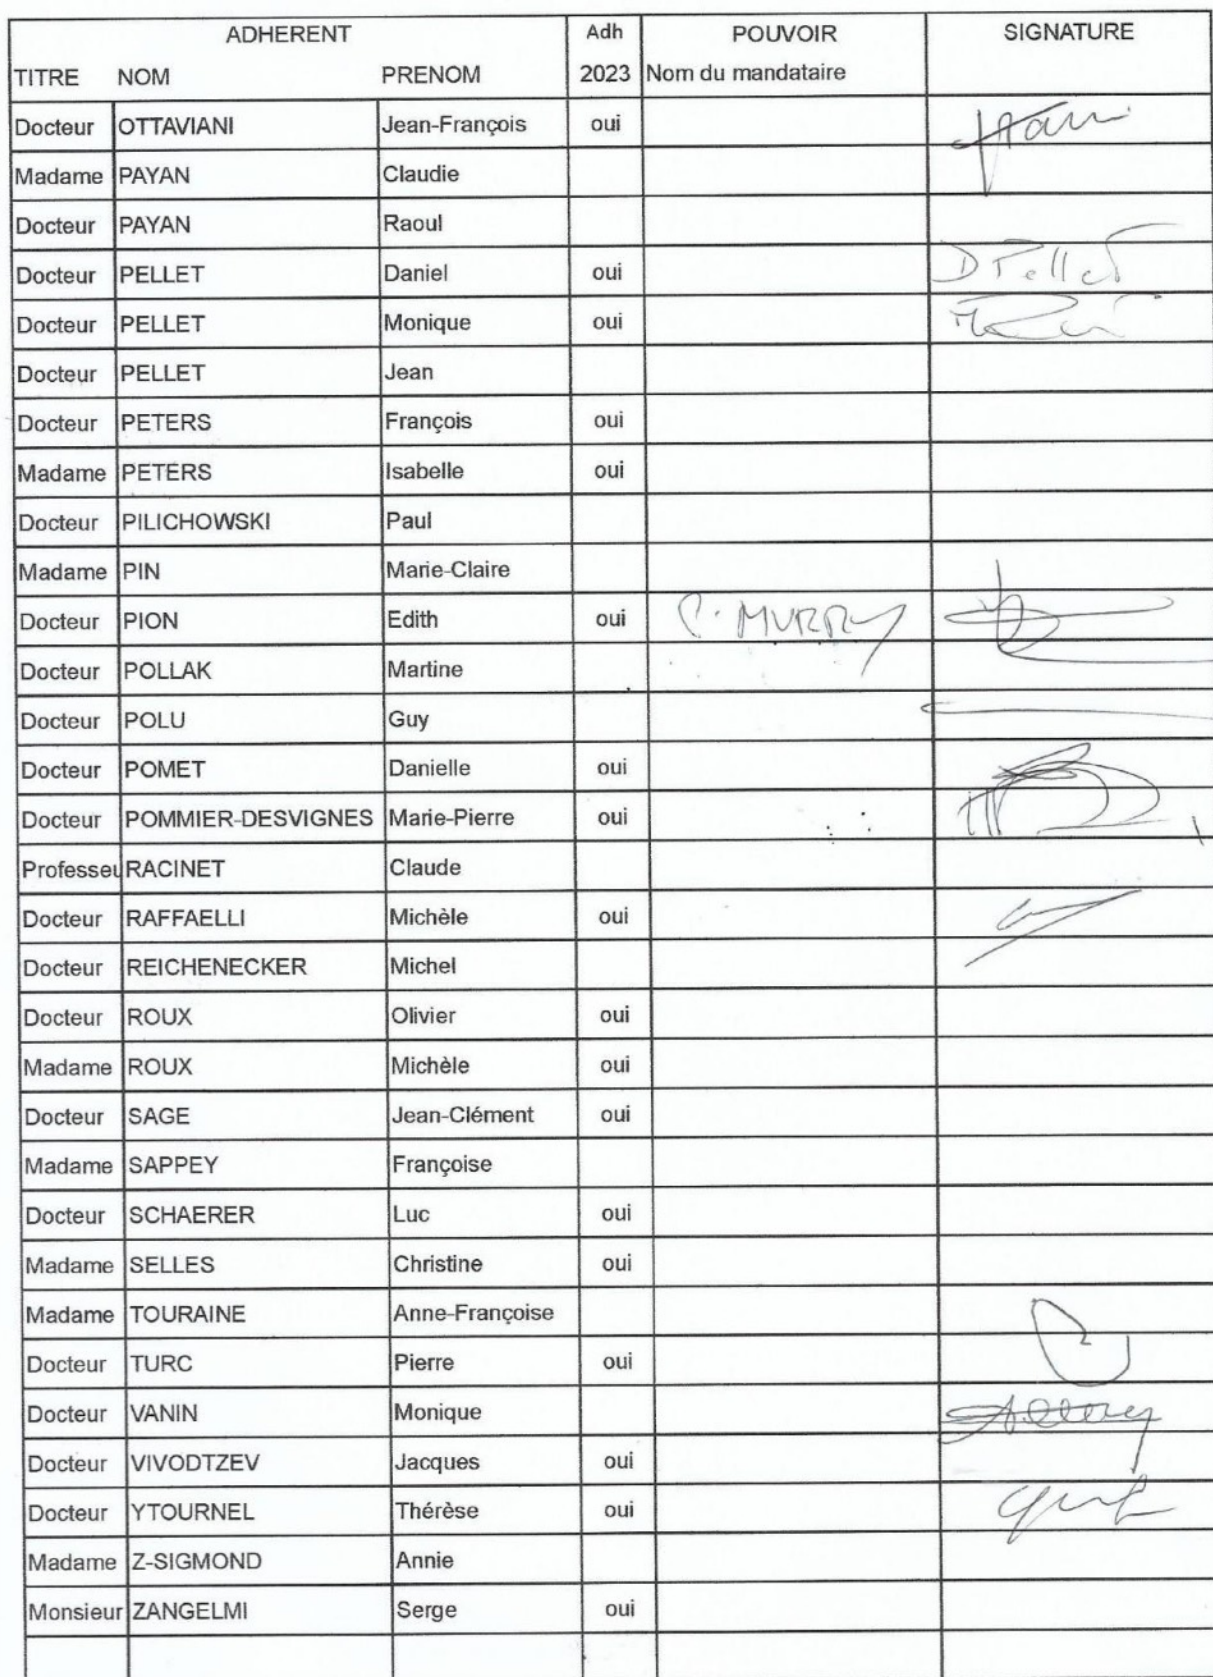 ADHERENT Adh POUVOIR SIGNATURE
TITRE NOM PRENOM 2023 Nom du mandataire
Docteur OTTAVIANI Jean-François oui
Madame PAYAN Claudie
Docteur PAYAN Raoul
Docteur PELLET Daniel oui D Pellet
Docteur PELLET Monique oui
Docteur PELLET Jean
Docteur PETERS François oui
Madame PETERS Isabelle oui
Docteur PILICHOWSKI Paul
Madame PIN Marie-Claire
Docteur PION Edith oui P. MURRY
Docteur POLLAK Martine
Docteur POLU Guy
Docteur POMET Danielle oui
Docteur POMMIER-DESVIGNES Marie-Pierre oui
Professeu RACINET Claude
Docteur RAFFAELLI Michèle oui
Docteur REICHENECKER Michel
Docteur ROUX Olivier oui
Madame ROUX Michèle oui
Docteur SAGE Jean-Clément oui
Madame SAPPEY Françoise
Docteur SCHAERER Luc oui
Madame SELLES Christine oui
Madame TOURAINE Anne-Françoise
Docteur TURC Pierre oui
Docteur VANIN Monique
Docteur VIVODTZEV Jacques oui
Docteur YTOURNEL Thérèse oui
Madame Z-SIGMOND Annie
Monsieur ZANGELMI Serge oui